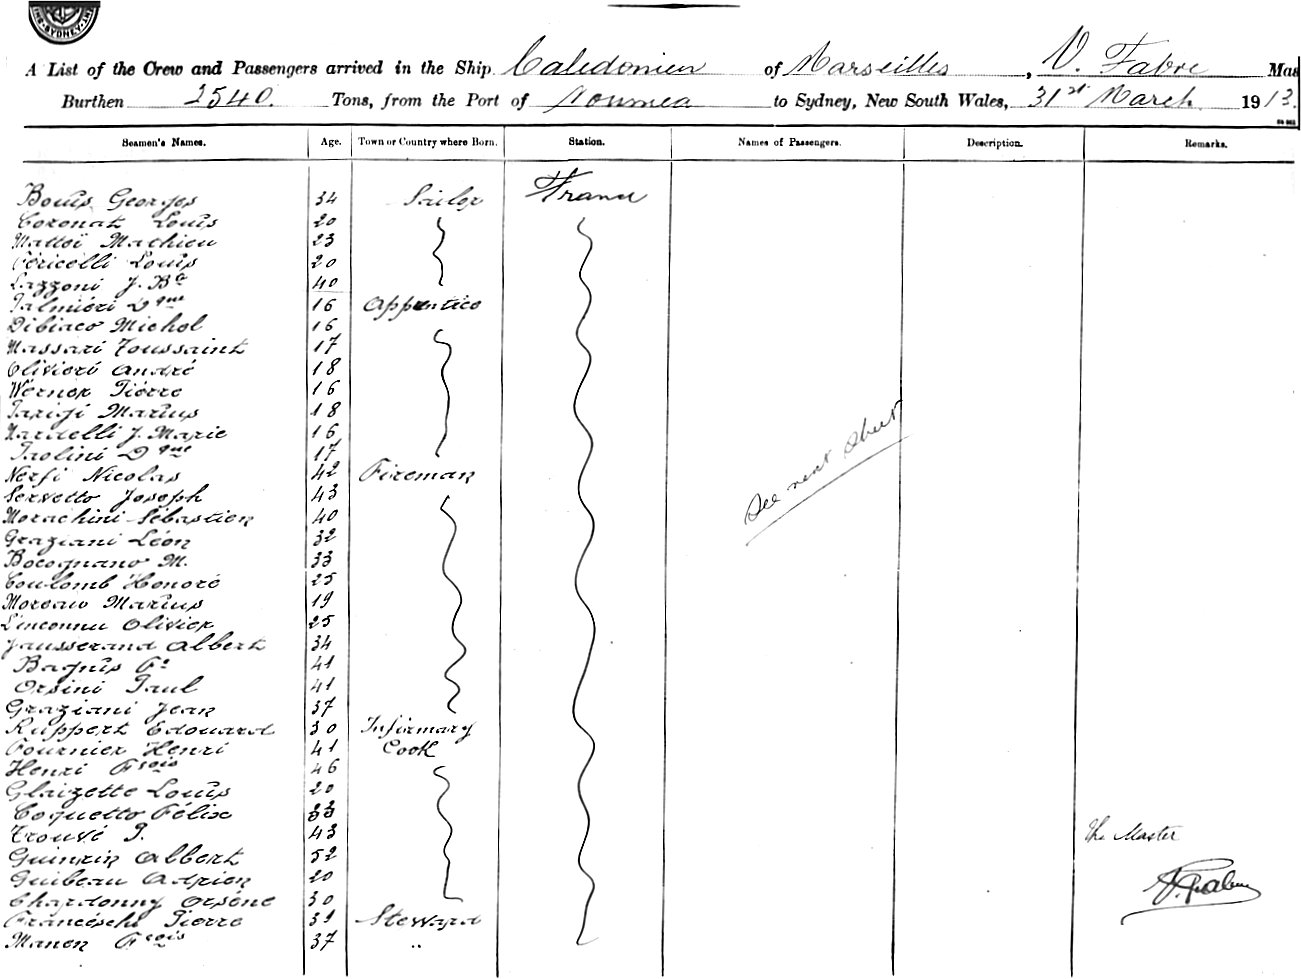 SYDNEY
A List of the Crew and Passengers arrived in the Ship Caledonien of Marseilles, V. Fabre Mas
Burthen 2540. Tons, from the Port of Noumea to Sydney, New South Wales, 31st March 1913.
Seamen's Names. Age. Town or Country where Born. Station. Names of Passengers. Description. Remarks.
Bouïs Georges 34 Sailor France
Coronat Louis 20
Matteï Mathieu 23
Péricelli Louis 20
Lazzoni J. Bte 40
Palmiéri Dque 16 Apprentice
Dibiaco Michel 16
Massari Toussaint 17
Olivieri André 18
Werner Pierre 16
Parigi Marius 18
Nardelli J. Marie 16
Paolini Dque 17
Nerfi Nicolas 42 Fireman
Servetto Joseph 43
Morachini Sébastien 40
Graziani Léon 32
Bocognano M. 33
Coulomb Honoré 25
Moreau Marius 19
L'inconnu Olivier 25
Jausserand Albert 34
Bagnis Fs 41
Orsini Paul 41
Graziani Jean 37
Ruppert Edouard 30 Infirmary
Fournier Henri 41 Cook
Henri Fçois 46
Glaizette Louis 20
Coquetto Félix
Trouvé P. 43
Guinrin Albert 52
Guibeau Adrien 20
Chardonny Orséne 30
Francéschi Pierre 39 Steward
Manen Fçois 37 "
See next sheet
The Master
V. Fabre